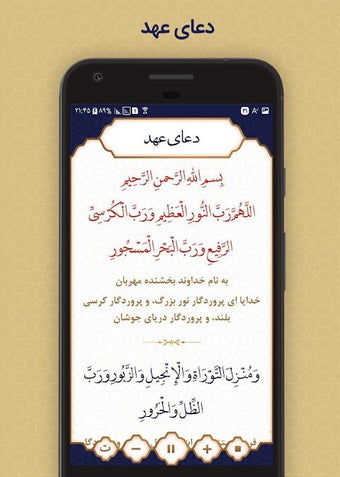 دعای عهد
۲۱:۴۵ ۸۹%
دعای عهد
بِسمِ اللهِ الرَّحمنِ الرَّحیمِ
اَللّهُمَّ رَبَّ النُّورِ الْعَظیمِ وَ رَبَّ الْكُرسیِّ
الرَّفیعِ وَ رَبَّ الْبَحْرِ الْمَسْجُورِ
به نام خداوند بخشنده مهربان
خدایا ای پروردگار نور بزرگ، و پروردگار کرسی
بلند، و پروردگار دریای جوشان
وَ مُنْزِلَ التَّوْراةِ وَ الْاِنْجیلِ وَ الزَّبُورِ وَ رَبَّ
الظِّلِّ وَ الْحَرُورِ
ت − + ■